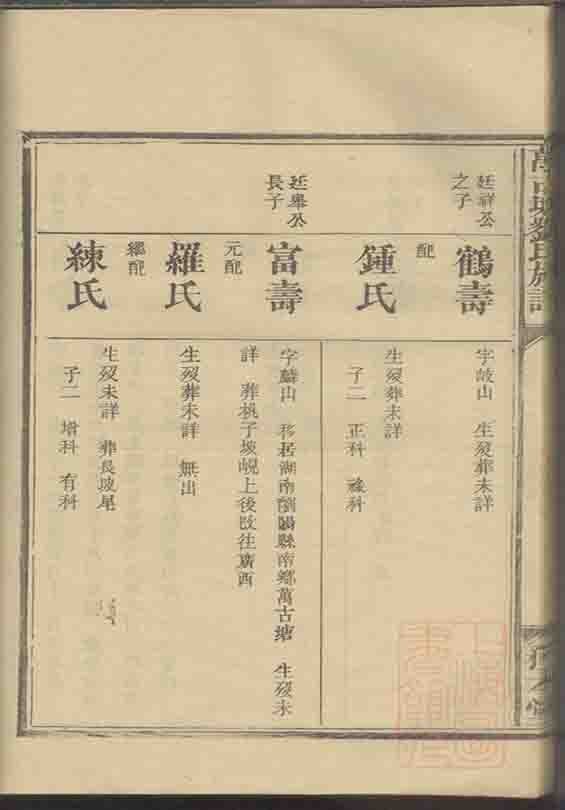 廷祥公
之子
鶴壽
字皷山　生歿葬未詳
配
鍾氏
生歿葬未詳
子二　正科　祿科
廷舉公
長子
富壽
字麟山　移居湖南瀏陽縣南鄉萬古塘　生歿未
詳　葬桃子坡峴上後改往廣西
元配
羅氏
生歿葬未詳　無出
繼配
練氏
生歿未詳　葬長坡尾
子二　增科　有科